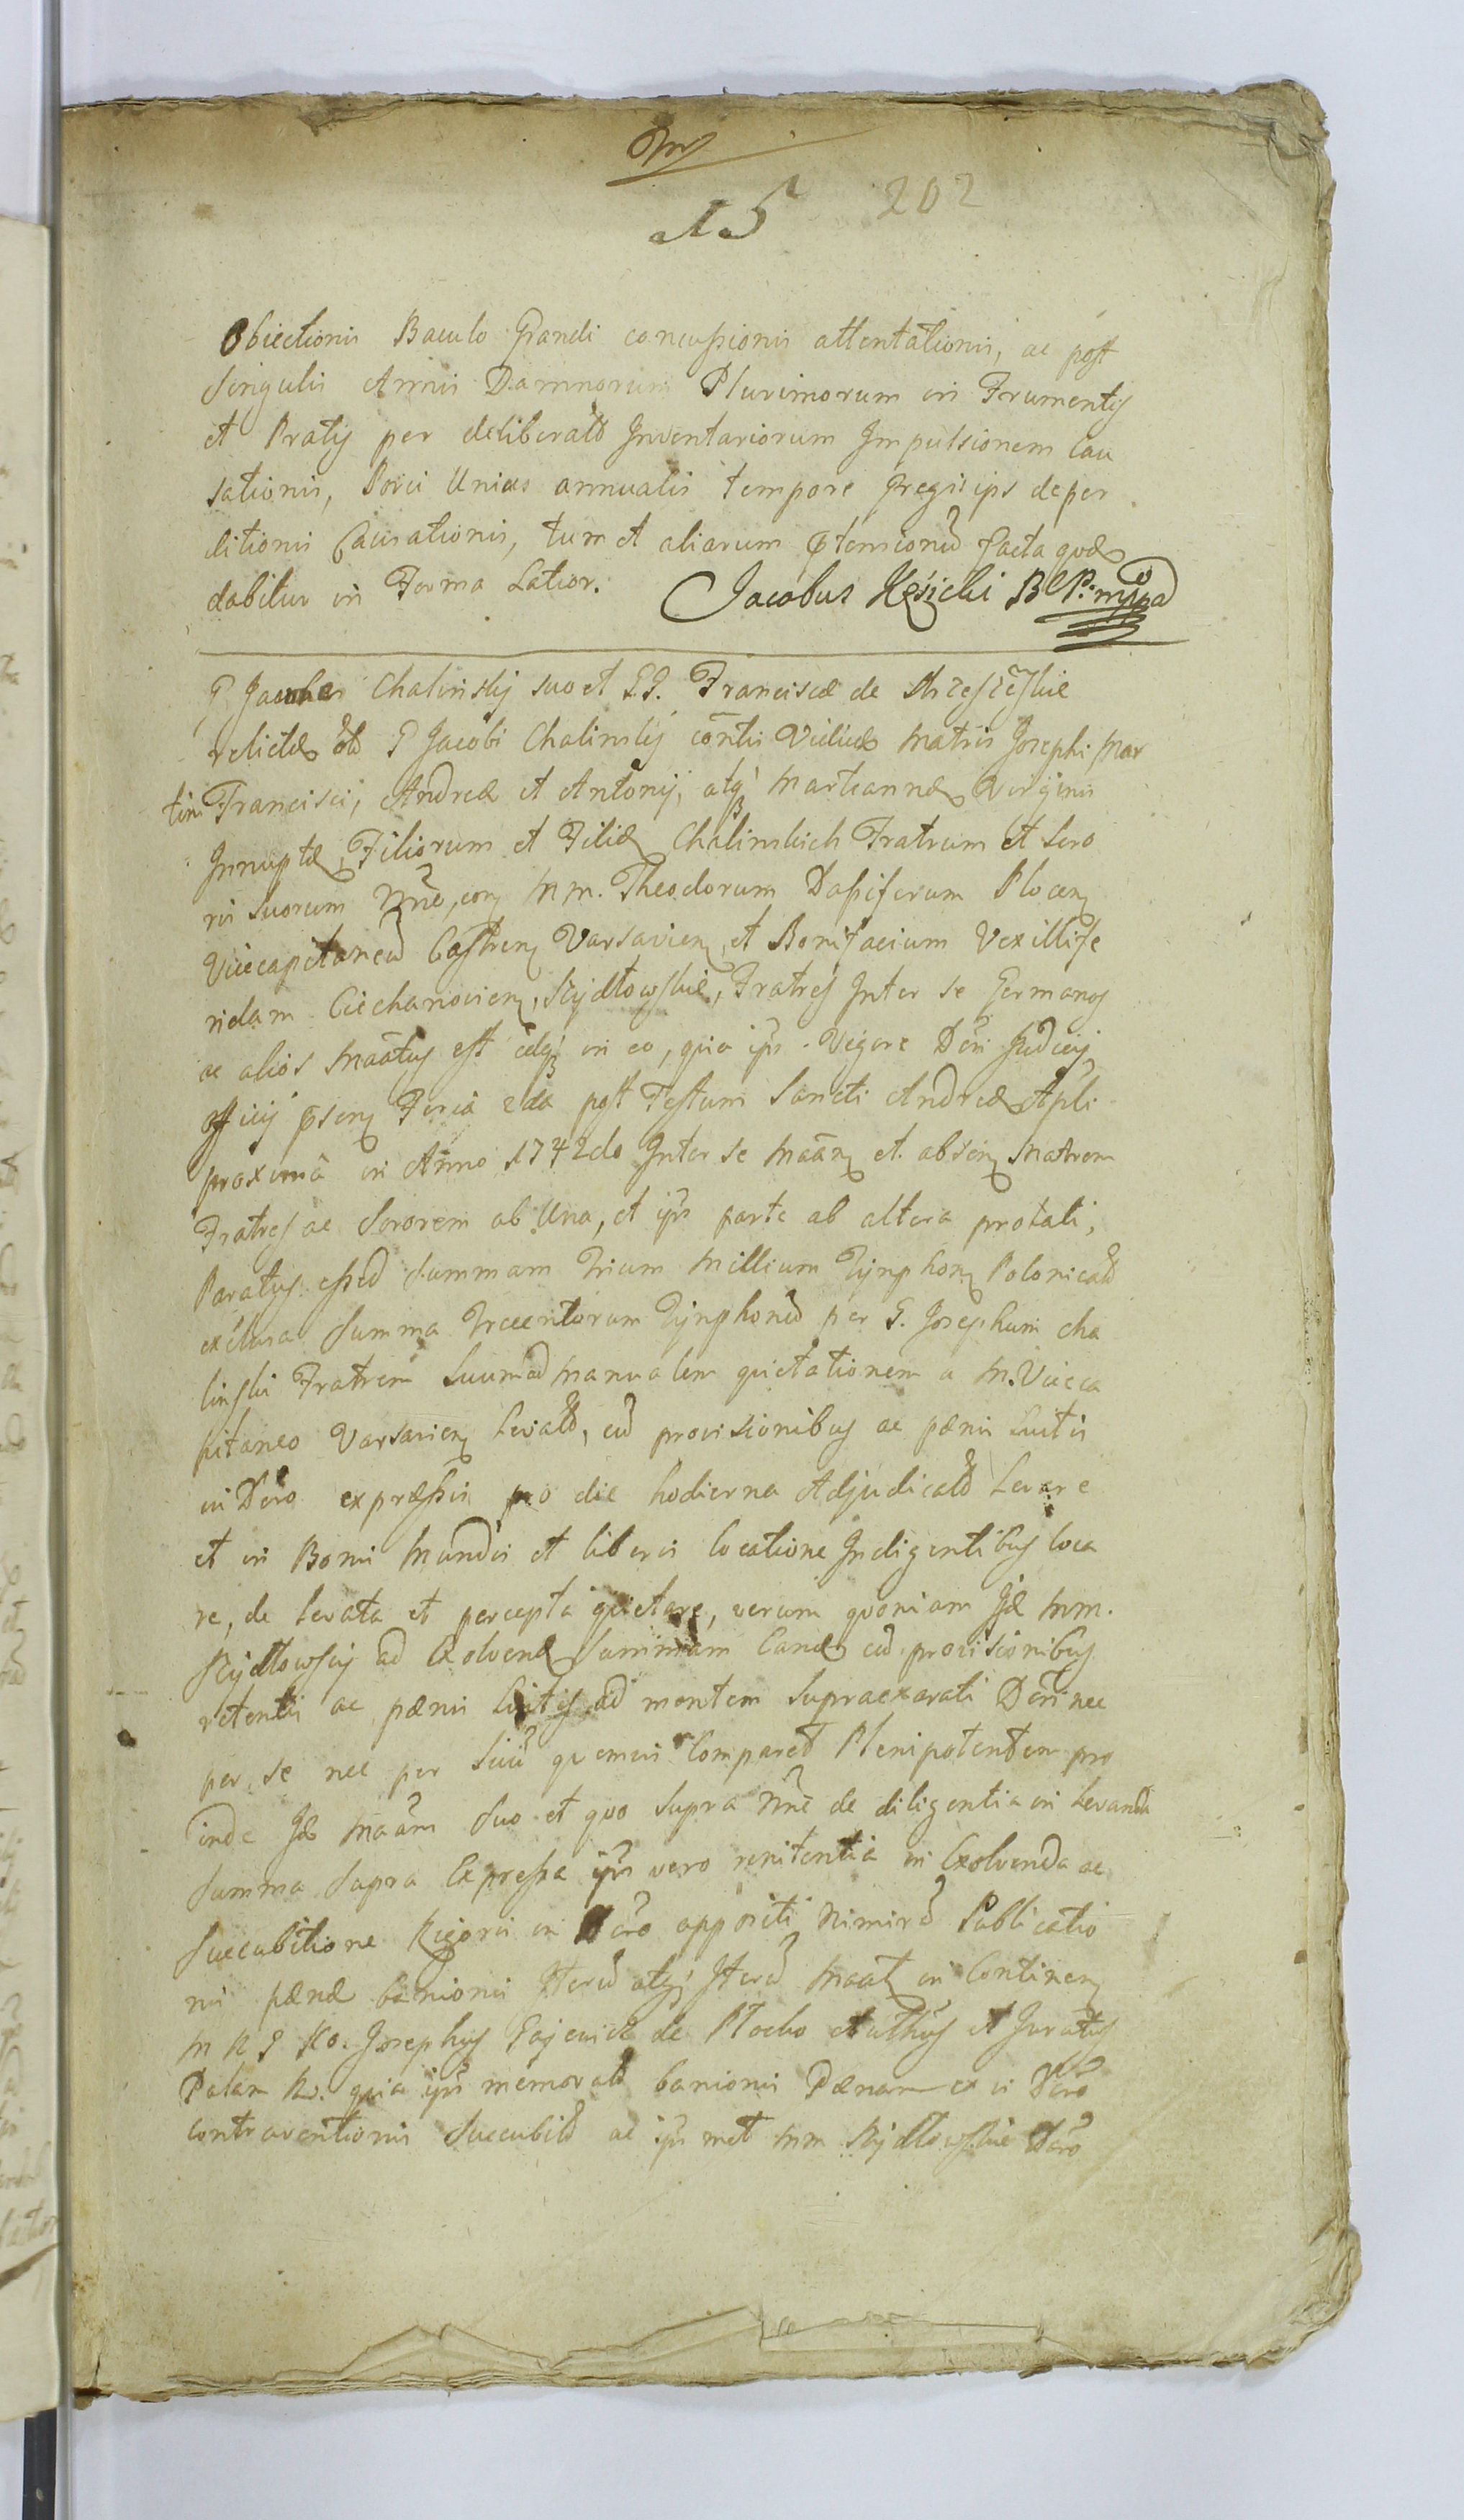 15 202
Obiectionis Baculo Grandi concussionis attentationis, ac post
Singulis Annis Damnorum Plurimorum in Frumentis
et Pratis per deliberatã Inventariorum Impulsionem cau
sationis, Porci Unius annualis tempore deper
ditionis Causationis, tum et aliarum ꝓtensionũ facta quæ
dabitur in Forma Latior. Jacobus Kęsicki
G Chalinskÿ suo et GG. Franciscæ de
relictæ G Jacobi Chalinskÿ cõntis Viduæ Matris Josephi Mar
tini Francisci, Andreæ et Antonij, atq́ꝫ Mariannæ Virginis
Innuptæ, Filiorum et Filiæ Chalinskich Fratrum et Soro
ris Suorum Nñe, con̨ Mm. Theodorum Dapiferum Plocen̨
Vicecapitaneũ Castren̨ Varsavien̨, et Bonifacium Vexillife
ridam Ciechanovien̨, Szÿdłowskie, Fratres Inter se Germanos
ac alios Maãtus est idq́ꝫ in eo, quia ip̃i Vigore Dẽti Judicÿ
officÿ p̃sen̨ Feriâ 2da post Festum Sancti Andreæ Apl̃i
proximâ in Anno 1742do Inter se Maãn̨ et absen̨ Matrem
Fratres ac Sororem ab Una, et ip̃s parte ab altera prolati,
Paratus essed Summam Trium Millium Tÿnphon̨ Polonicalũ
exclusa Summa Trecentorum Tÿnphonũ per G. Josephum Cha
linski Fratrem Suum ad manualem quietationem a M. Viceca
pitaneo Varsavien̨ Levatã, cũ provisionibus ac pænis Luitis
in Dẽto expræssis pro die hodierna Adjudicatã Levare
et in Bonis Mundis et liberis locatione Indigentibus loca
re, de Levata et percepta quietare, verum quoniam Iid Mm.
Szÿdłowscÿ ad Exolvend̨ Summam Eand̨ cũ provisionibus
retentis ac pænis Luitis ad mentem Supraexarati Dẽti nec
per se nec per Suũ quemvis Compared Plenipotentem pro
inde Id Maãns Suo et quo Supra Nñe de diligentia in Levanda
Summa Supra Expressa ip̃s vero renitentia in Exolvenda ac
Succubitione Rigoris in Dẽto appositi Nimirũ Publicatio
nis pænæ banionis Iterũ atq́ꝫ Iterũ Maat̨ in Continen̨
M R G Ko. Josephus Gajewick de Płocko Authus et Juratus
Palam Ro. quia ip̃i memoratã banionis Pænam ex vi Dẽto
contraventionis Succubitũ ac ip̃i met Mm Szÿdłowskie Dẽto